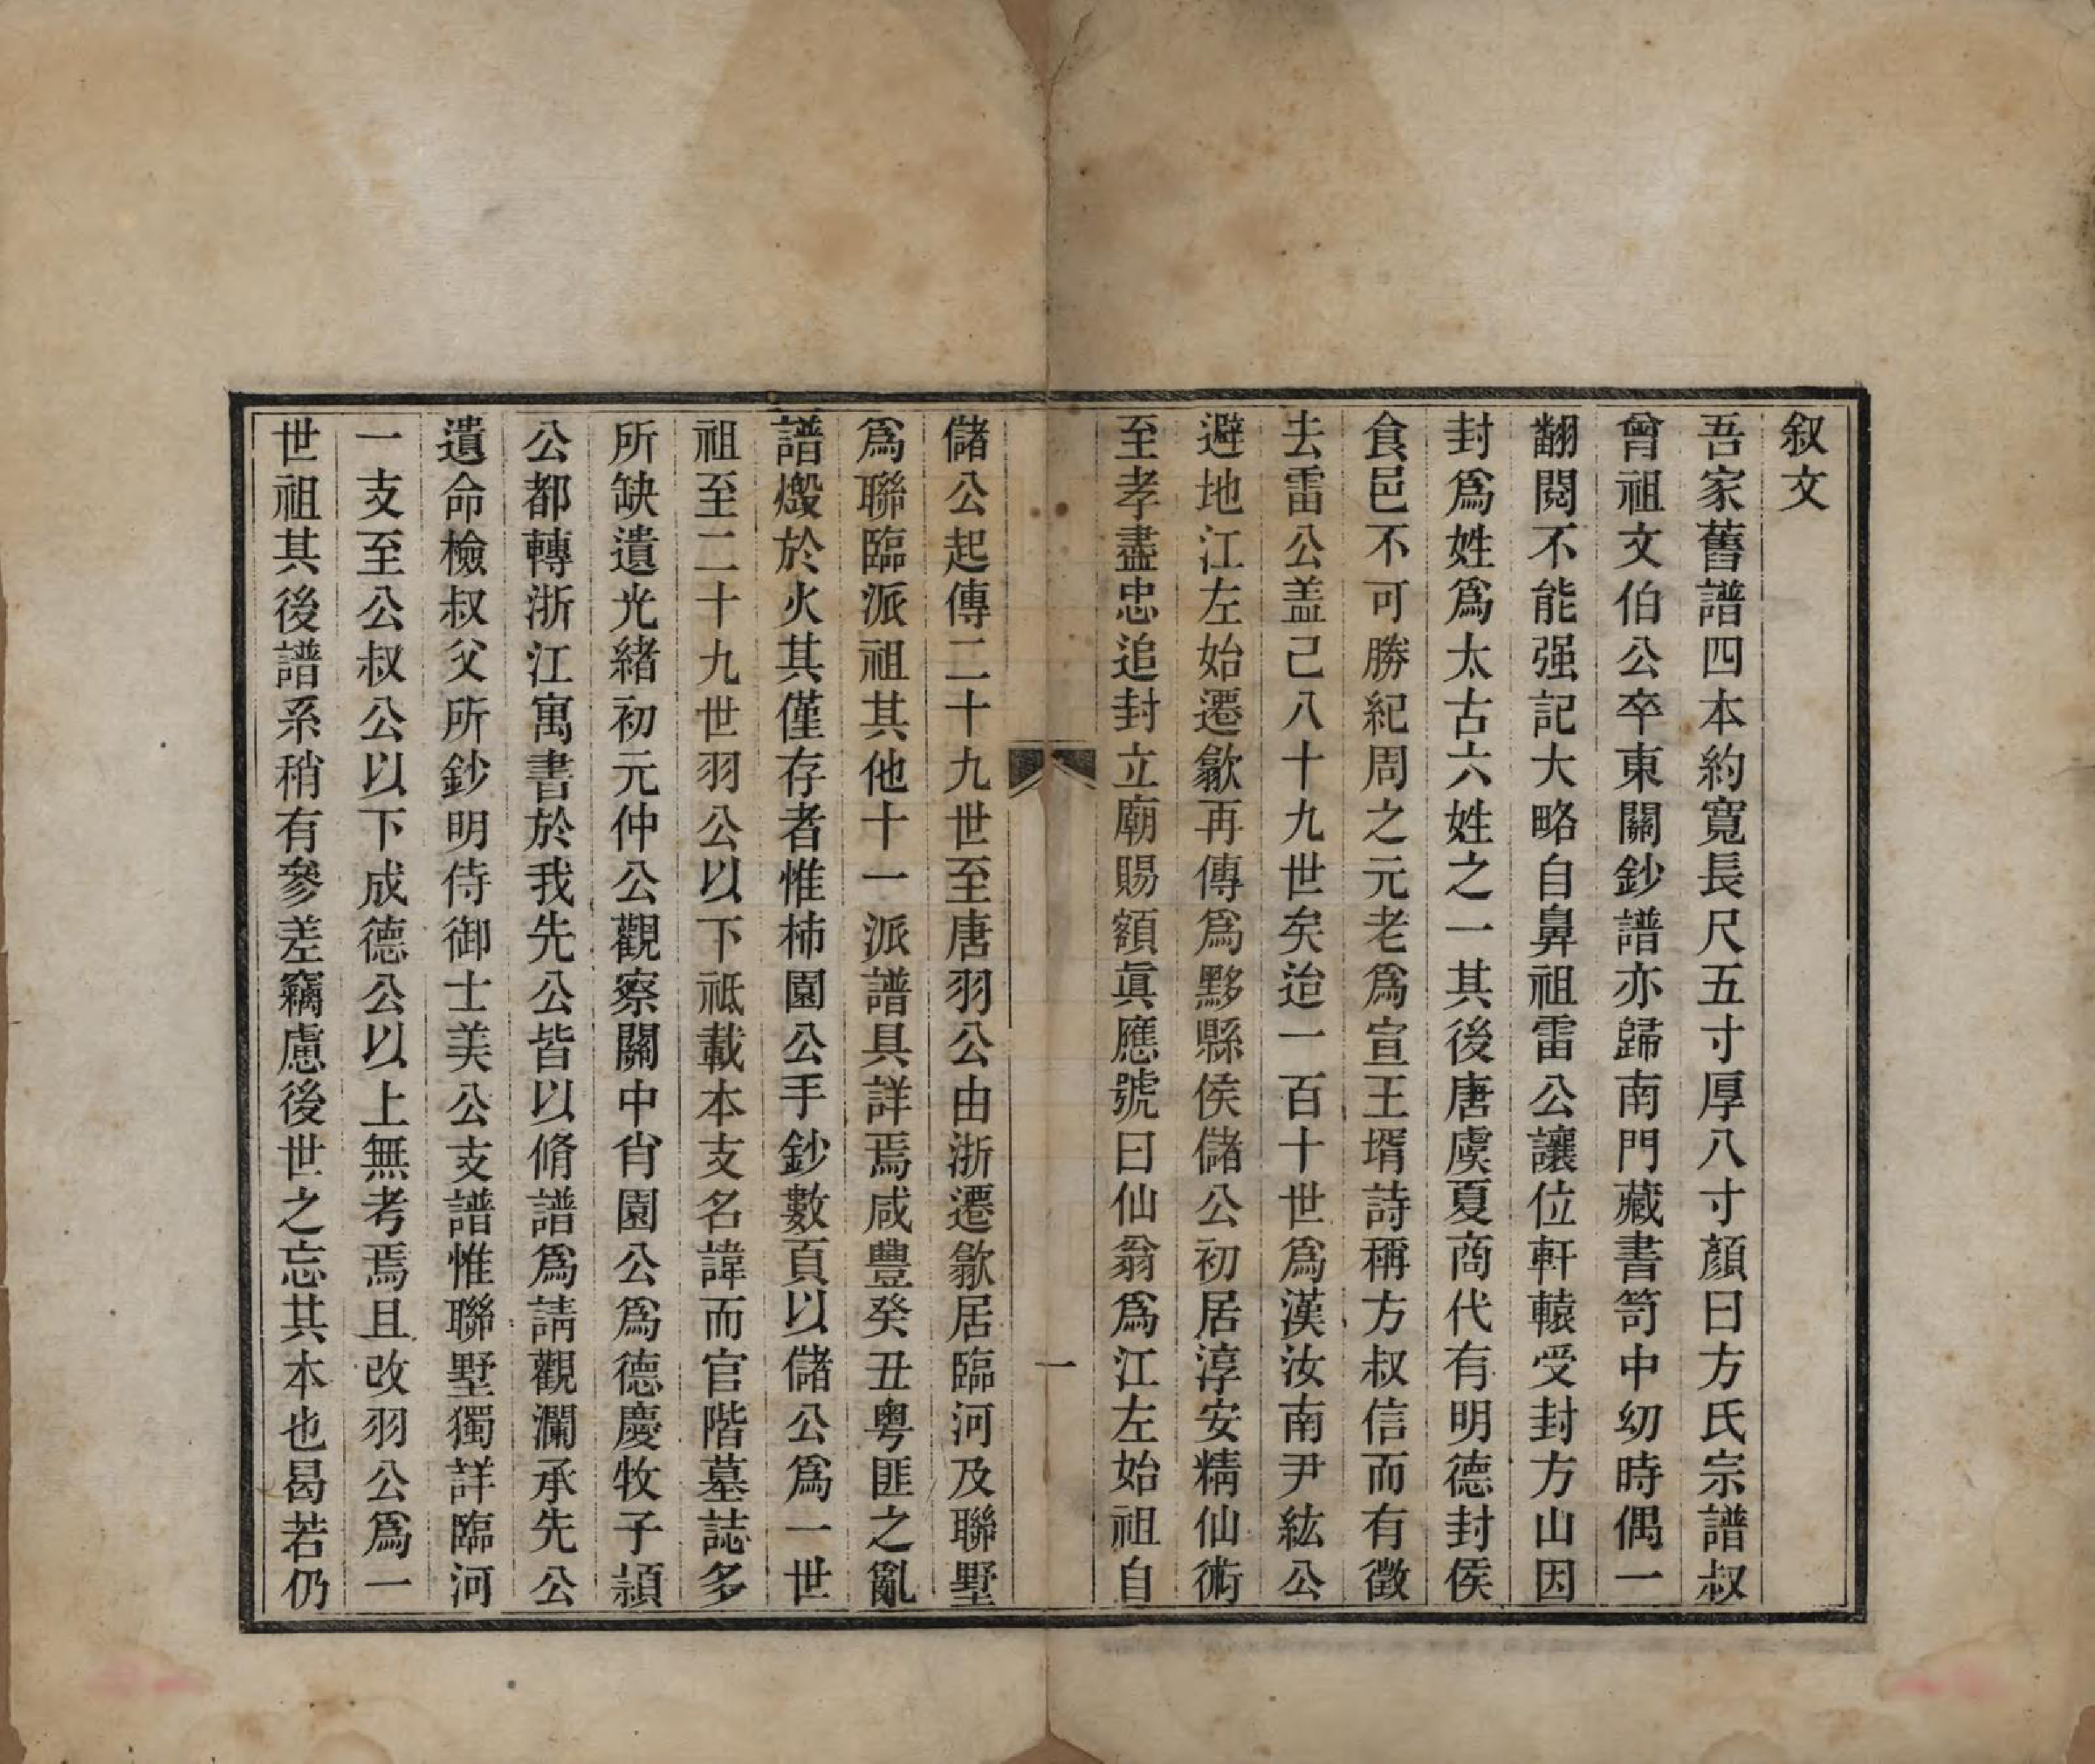 叙文
吾家舊譜四本約寬長尺五寸厚八寸顏曰方氏宗譜叔
曾祖文伯公卒東關鈔譜亦歸南門藏書笥中幼時偶一
翻閱不能强記大略自鼻祖雷公讓位軒轅受封方山因
封爲姓爲太古六姓之一其後唐虞夏商代有明德封侯
食邑不可勝紀周之元老爲宣王壻詩稱方叔信而有徵
去雷公盖己八十九世矣迨一百十世爲漢汝南尹紘公
避地江左始遷歙再傳爲黟縣侯儲公初居淳安精仙術
至孝盡忠追封立廟賜額眞應號曰仙翁爲江左始祖自
一
儲公起傳二十九世至唐羽公由浙遷歙居臨河及聯墅
爲聯臨派祖其他十一派譜具詳焉咸豐癸丑粤匪之亂
譜燬於火其僅存者惟柿園公手鈔數頁以儲公爲一世
祖至二十九世羽公以下祗載本支名諱而官階墓誌多
所缺遺光緒初元仲公觀察關中肖園公爲德慶牧子頴
公都轉浙江寓書於我先公皆以脩譜爲請觀瀾承先公
遺命檢叔父所鈔明侍御士美公支譜惟聯墅獨詳臨河
一支至公叔公以下成德公以上無考焉且改羽公爲一
世祖其後譜系稍有參差竊慮後世之忘其本也曷若仍